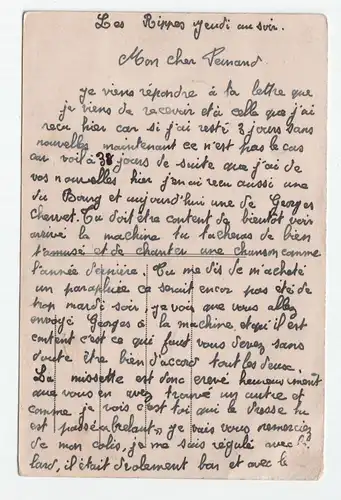 Les Rippes jeudi au soir.
Mon cher Fernand.
je viens répondre à ta lettre que
je viens de recevoir et à celle que j'ai
recu hier car si j'ai resté 3 jours sans
nouvelles maintenant ce n'est pas le cas
car voilà 3 jours de suite que j'ai de
vos nouvelles hier j'en ai recu aussi une
du Bourg et aujourd'hui une de Georges
Chauvet. Tu doit être content de bientot voir
arrivé la machine tu tacheras de bien
t'amusé et de chanter une chanson comme
l'année dernière. Tu me dis de m'acheté
un parapluie ca serait encor pas été de
trop mardi soir. je vois que vous allez
envoyé Georges à la machine, et qu'il est
content c'est ce qui faut vous serez sans
doute être bien d'accord tout les deux.
La mussette est donc crevé heureusement
que vous en avez trouvé un autre et
comme je vois c'est toi qui le dresse tu
est passé "brelant" je vais vous remerciez
de mon colis, je me suis régulé avec le
lard, il était drolement bon et avec le